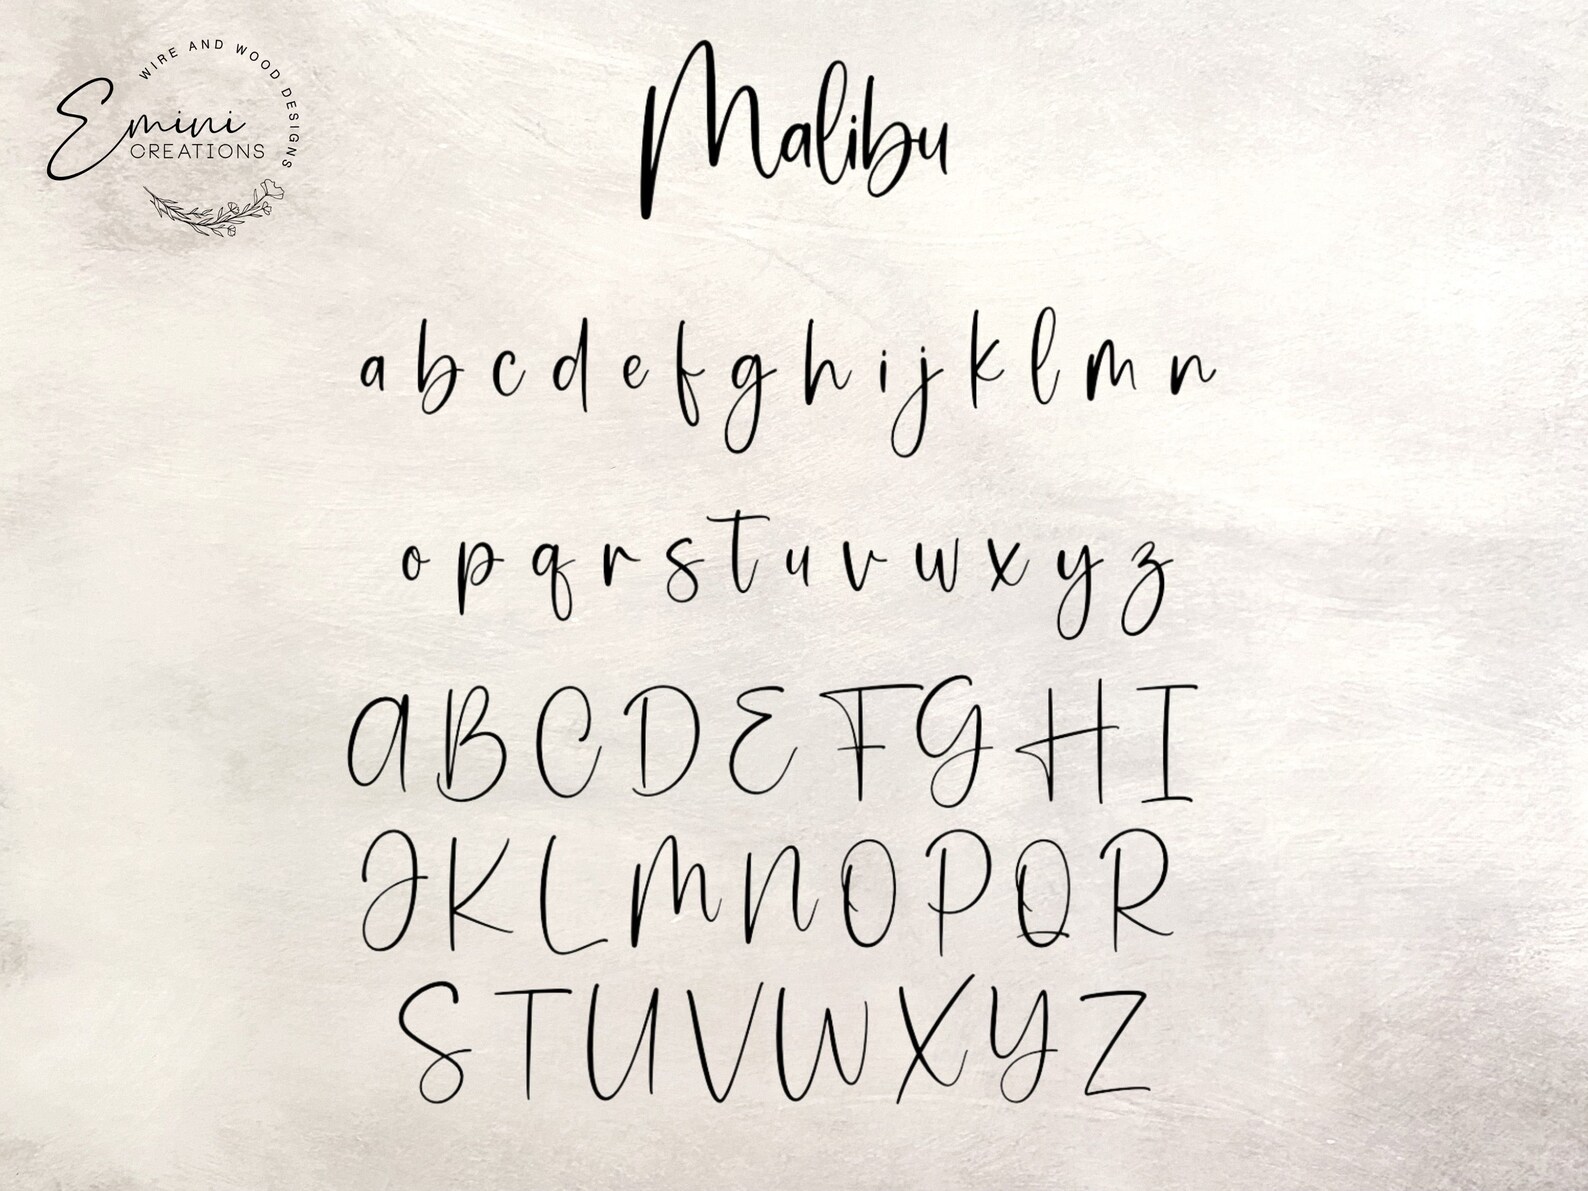 WIRE AND WOOD DESIGNS
Emini
CREATIONS
Malibu
a b c d e f g h i j k l m n
o p q r s t u v w x y z
A B C D E F G H I
J K L M N O P Q R
S T U V W X Y Z